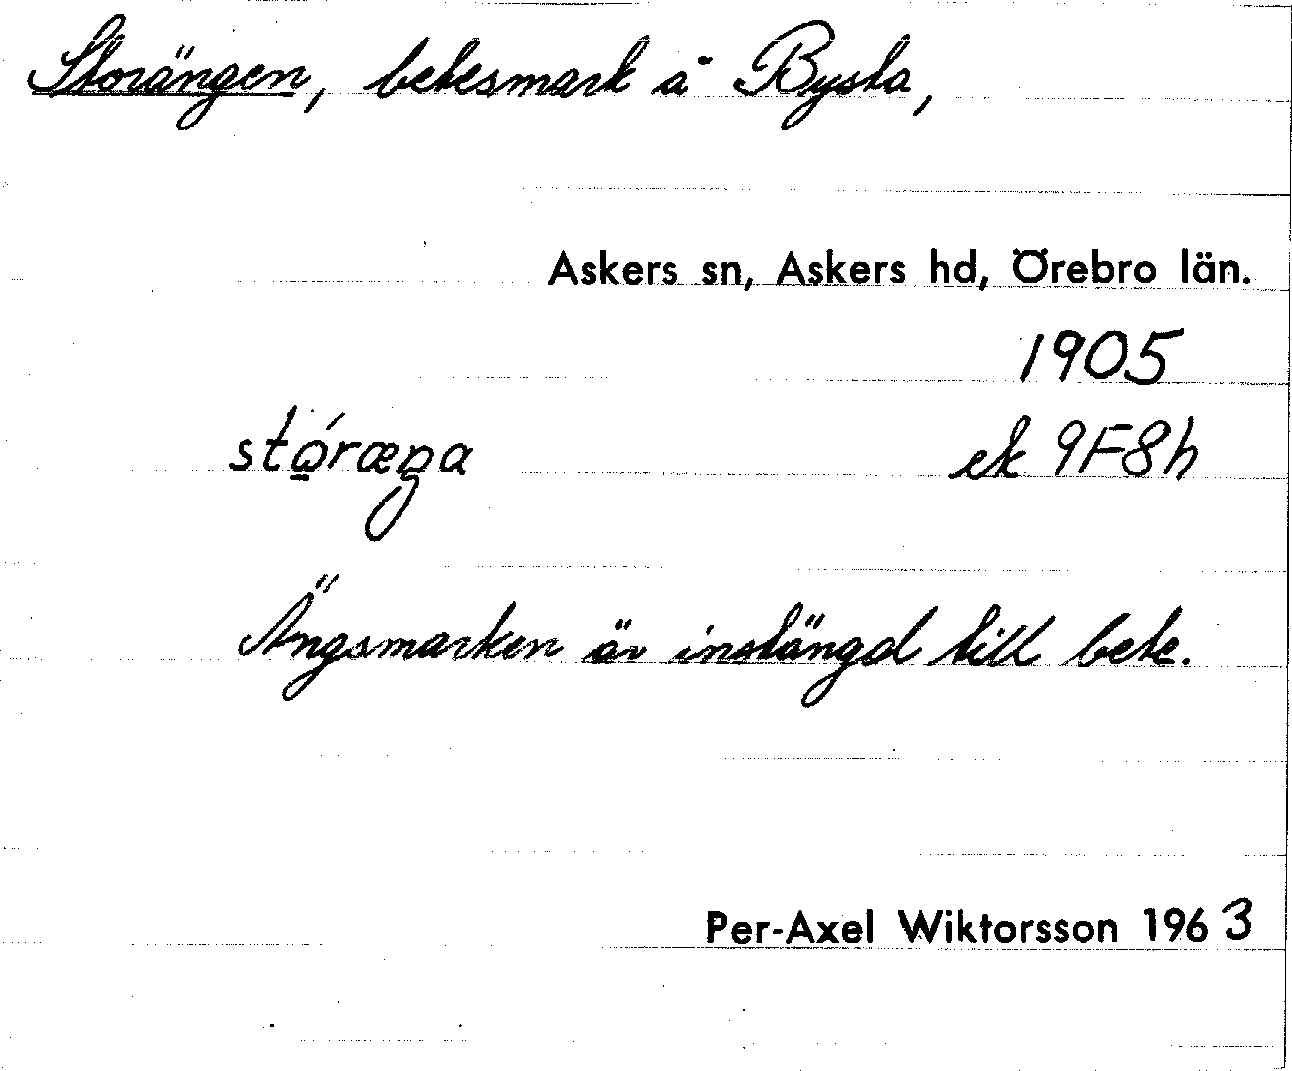 Storängen, betesmark å Bysta,
Askers sn, Askers hd, Örebro län.
1905
stǫ́ræŋa ek 9F8h
Ängsmarken är instängd till bete.
Per-Axel Wiktorsson 1963